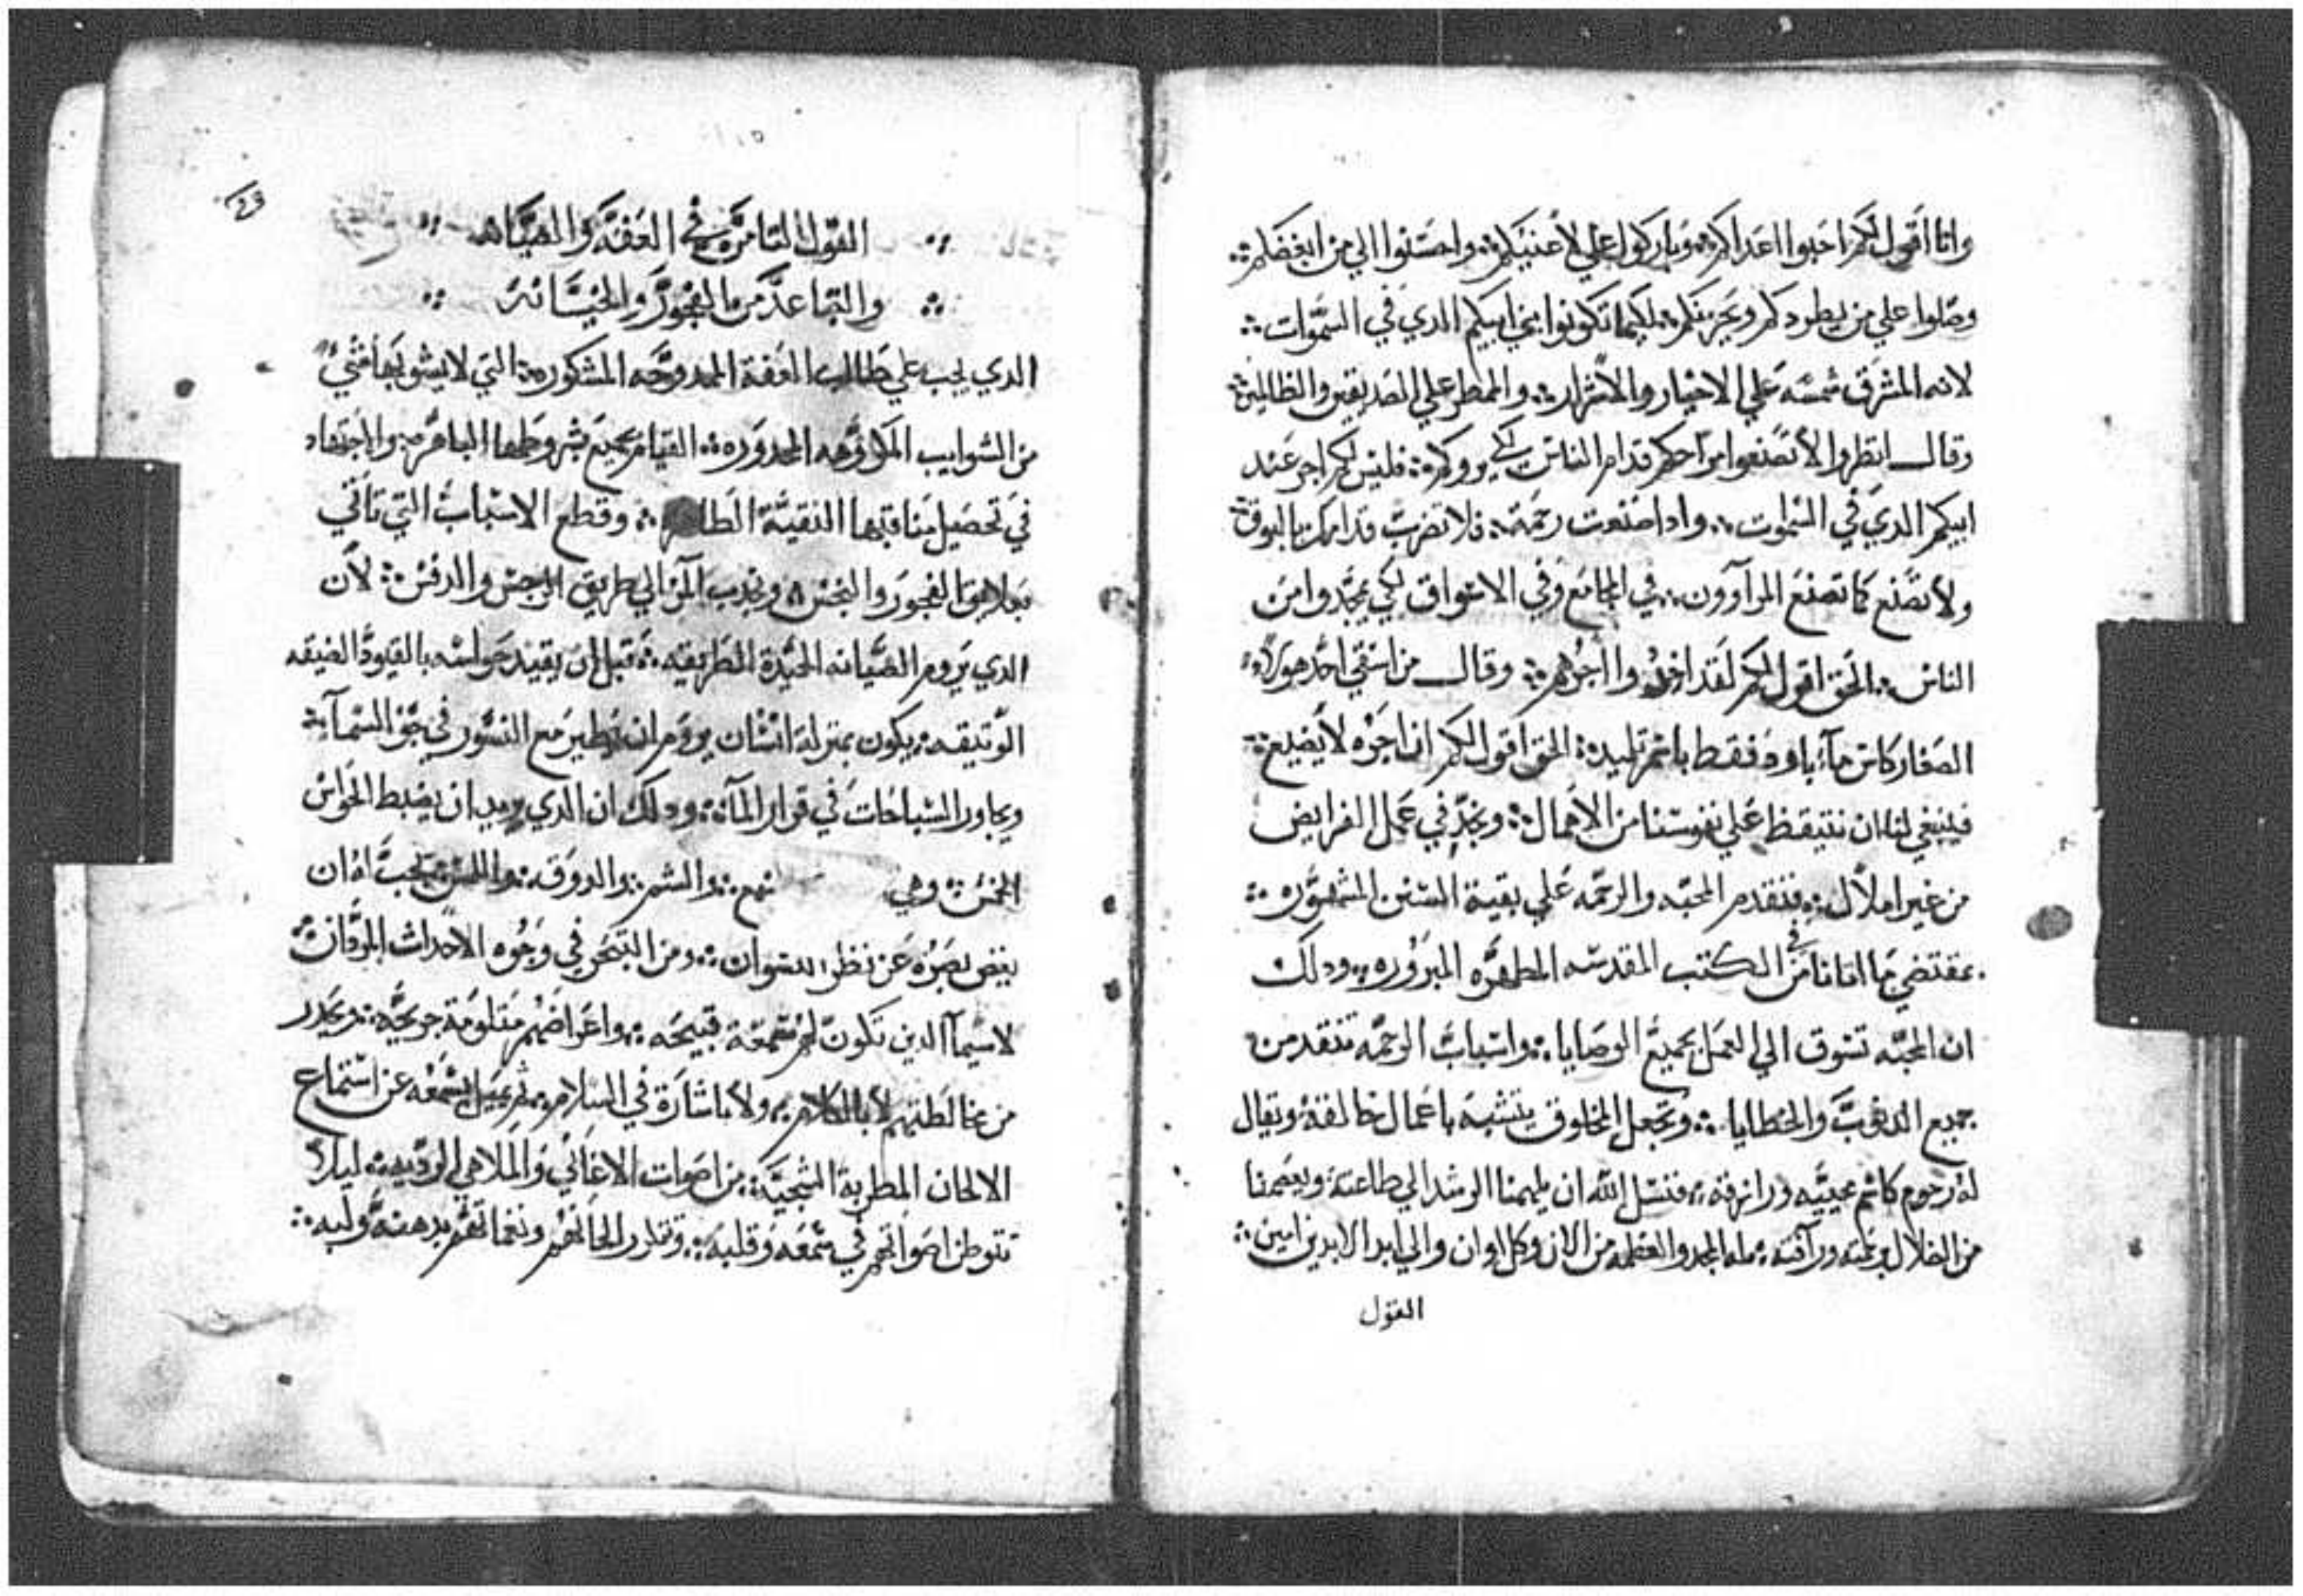 وانا اقول لكم احبوا اعداكم ۞ وباركوا علي لاعنيكم ۞ واحسنوا الي من ابغضكم ۞
وصلوا علي من يطردكم ويحزنكم ۞ لكيما تكونوا بني ابيكم الدي في السموات ۞
لانه المشرق شمسه علي الاخيار والاشرار ۞ والممطر علي الصديقين والظالمين ۞
وقال انظروا لا تصنعوا مراحمكم قدام الناس لكي يروكم ۞ فليس لكم اجر عند
ابيكم الدي في السموات ۞ وادا صنعت رحمة ۞ فلا تضرب قدامك بالبوق ۞
ولا تصنع كما تصنع المرآوون ۞ في المجامع وفي الاسواق لكي يمجدوا من
الناس ۞ الحق اقول لكم لقد اخدوا اجرهم ۞ وقال من اسقي احد هولاء
الصغار كاس مآء بارد فقط باسم تلميد ۞ الحق اقول لكم ان اجره لا يضيع ۞
فينبغي لنا ان نتيقظ علي نفوسنا من الاهمال ۞ ونجد في عمل الفرايض
من غير املال ۞ فنقدم المحبه والرحمه علي بقية السنن المشهوره ۞
بمقتضي ما اتانا في الكتب المقدسه المطهره المبروره ۞ ودلك
ان المحبه تسوق الي العمل بجميع الوصايا ۞ واسباب الرحمه تنقد من
جميع الدنوب والخطايا ۞ وتجعل المخلوق يتشبه باعمال خالقه ويقال
له رحوم كاسم محييه ورازقه ۞ فنسل الله ان يلهمنا الرشد الي طاعته ويعصمنا
من الضلال برحمته ورآفته ۞ له المجد والعظمه من الان وكل اوان والي ابد الابدين امين ۞
القول
القول الثامن في العفه والصيانه
والتباعد من الفجور والخيانه
الدي يجب علي طالب العفة الممدوحه المشكوره ۞ التي لا يشوبها شي
من الشوايب المكروهه المحدوره ۞ القيام بجميع شروطها الباهره ۞ والاجتهاد
في تحصيل مناقبها النقية الطاهره ۞ وقطع الاسباب التي تاتي
بعلايق الفجور والنجس ۞ وتجدب المرء الي طريق الرجس والدنس ۞ لان
الدي يروم الصيانه الحيدة الطريقه ۞ قبل ان يقيد حواسه بالقيود الضيقه
الوتيقه ۞ يكون بمنزلة انسان يروم ان يطير مع النسور في جو السمآء ۞
ويجاور السباحات في قرار المآء ۞ ودلك ان الدي يريد ان يضبط الحواس
الخمس ۞ وهي والشم ۞ والدوق ۞ واللمس ۞ يجب ان
يغض بصره عن نظر النسوان ۞ ومن التبحر في وجوه الاحداث المردان ۞
لاسيما الدين تكون لهم سمعة قبيحه ۞ واعراضهم متلومة جريحه ۞ ويحدر
من مخالطتهم لا بالكلام ۞ ولا باشارة في السلام ۞ ثم يميل بسمعه عن استماع
الالحان المطربة الشجيه ۞ من اصوات الاغاني والملاهي الرديه ۞ ليلا
تتوطن اصواتهم في سمعه وقلبه ۞ وتتادر الحانهم ونغماتهم بدهنه ولبه ۞